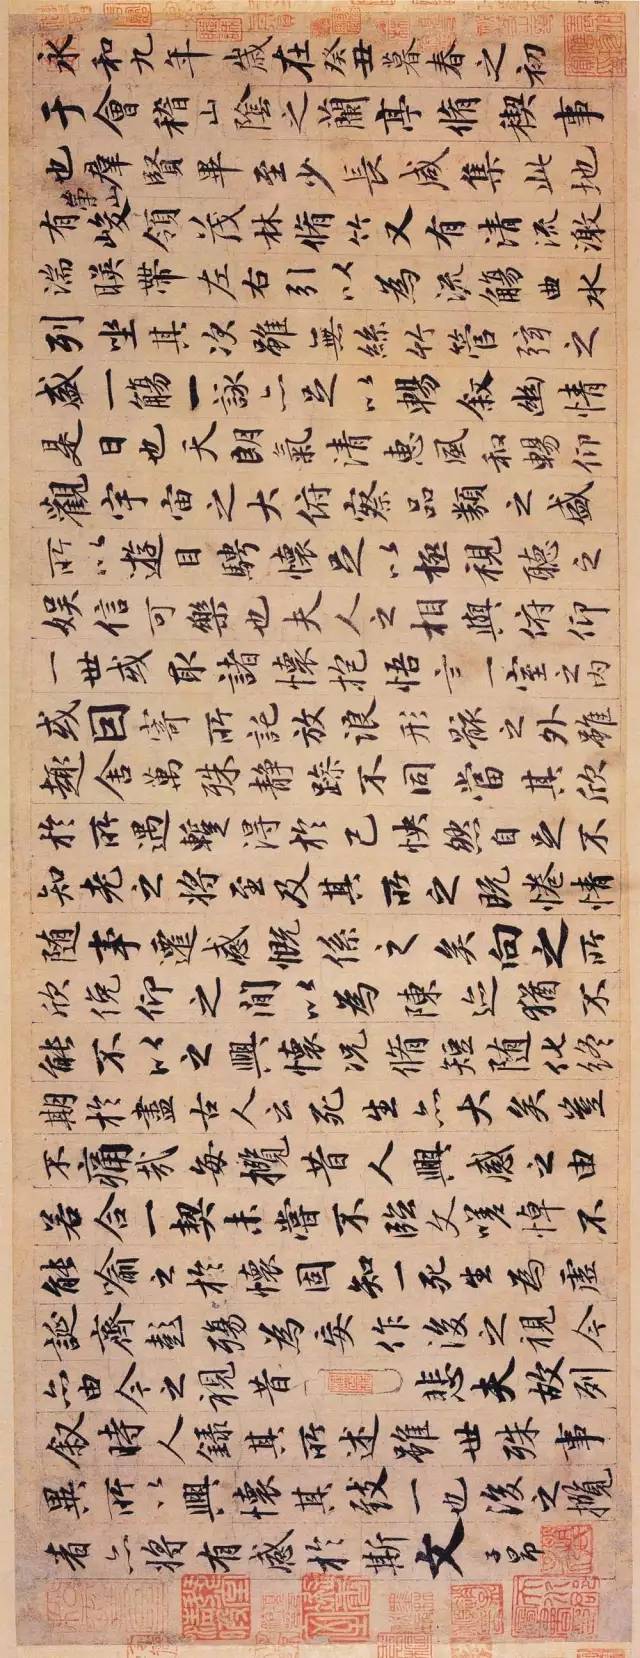 永和九年歲在癸丑暮春之初
于會稽山陰之蘭亭脩稧事
也群賢畢至少長咸集此地
有崇山峻領茂林脩竹又有清流激
湍暎帶左右引以為流觴曲水
列坐其次雖無絲竹管弦之
盛一觴一詠亦足以暢敘幽情
是日也天朗氣清惠風和暢仰
觀宇宙之大俯察品類之盛
所以遊目騁懷足以極視聽之
娛信可樂也夫人之相與俯仰
一世或取諸懷抱悟言一室之內
或因寄所託放浪形骸之外雖
趣舍萬殊靜躁不同當其欣
於所遇蹔得於己怏然自足不
知老之將至及其所之既惓情
隨事遷感慨係之矣向之所
欣俛仰之間以為陳迹猶不
能不以之興懷況脩短隨化終
期於盡古人云死生亦大矣豈
不痛哉每攬昔人興感之由
若合一契未嘗不臨文嗟悼不
能喻之於懷固知一死生為虛
誕齊彭殤為妄作後之視今
亦由今之視昔 悲夫故列
敘時人錄其所述雖世殊事
異所以興懷其致一也後之攬
者亦將有感於斯文 子昂